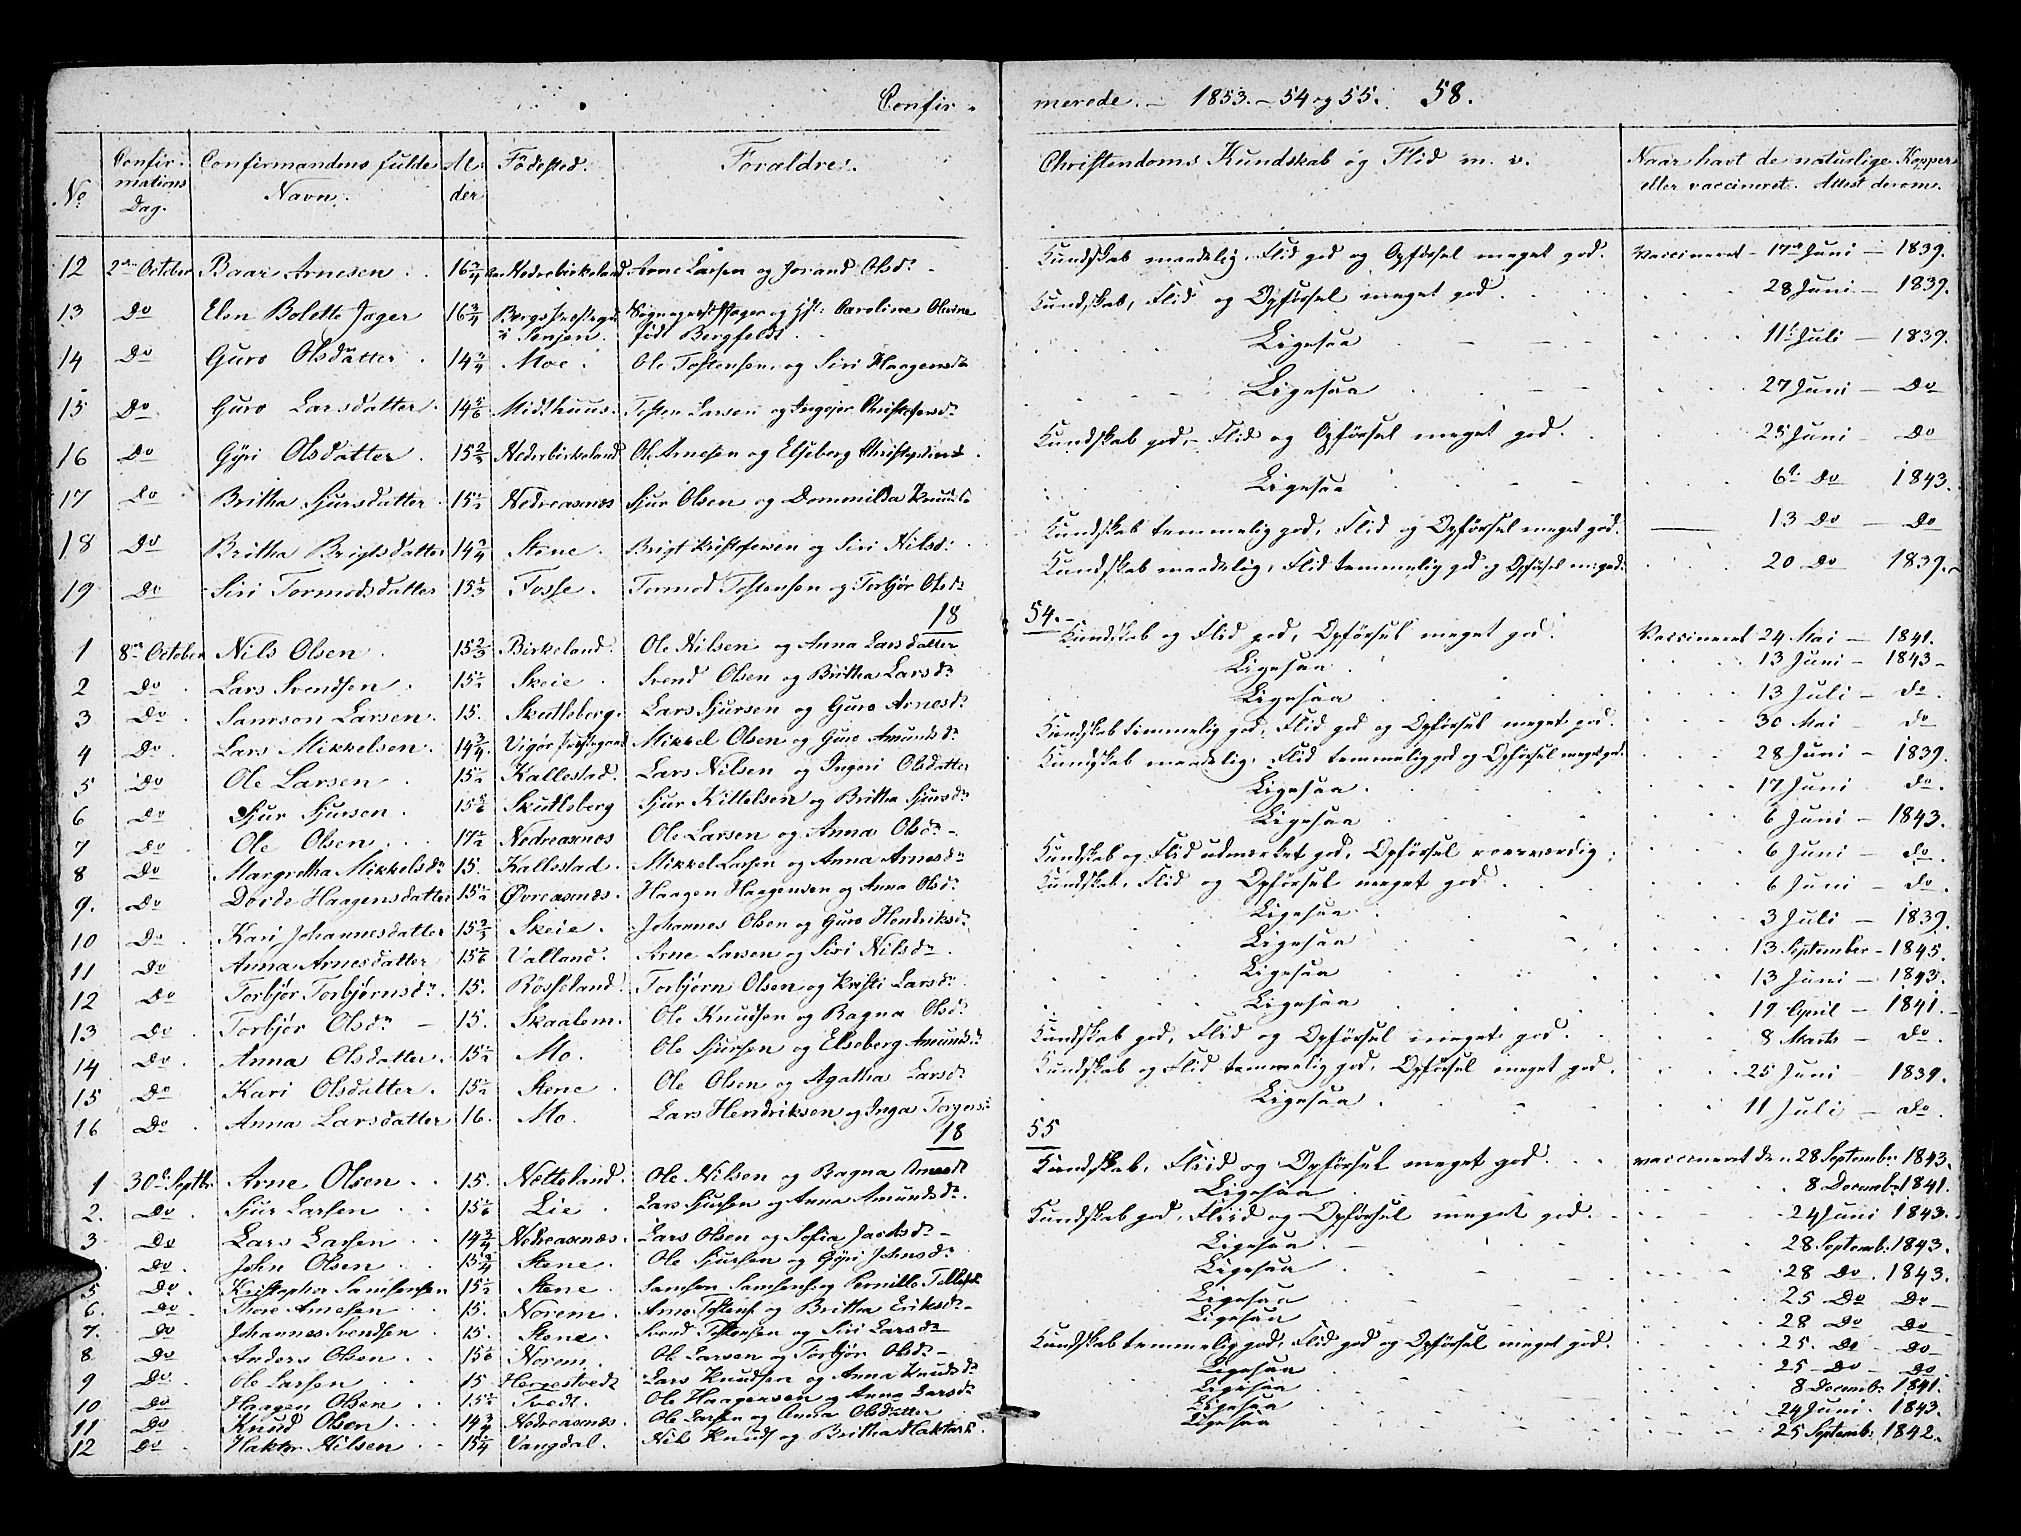 Confirmerede. – 1853. – 54 og 55. 58.
No | Confirmations Dag. | Confirmandens fulde Navn. | Alder | Födested. | Foraldre. | Christendoms Kundskab og Flid m. v. | Naar havt de naturlige Kopper eller vaccineret. Attest derom.
12 | 2den October | Baar Arnesen | 16 3/4 | Nedrebirkeland | Arne Larsen og Jorand Olsdr | Kundskab maadelig, Flid god og Opförsel meget god. | Vaccineret 17de Juni – 1839.
13 | Do | Elen Bolette Jager | 16 3/4 | Bergs Prestegd i Senjen. | Sognepræst Jager og Hst: Caroline Olivine född Bergfeldt | Kundskab, Flid og Opförsel meget god. | 28 Juni – 1839.
14 | Do | Guro Olsdatter | 14 3/4 | Moe | Ole Tostensen og Siri Haagensdr | Ligesaa | 11te Juli – 1839.
15 | Do | Guro Larsdatter | 14 5/6 | Midthuus | Tosten Larsen og Ingejer Christofersdr | Ligesaa | 27 Juni – Do
16 | Do | Gÿri Olsdatter | 15 2/3 | Nederbirkeland | Ole Arnesen og Elseberg | Kundskab god, Flid og Opförsel meget god. | 25 Juni – Do
17 | Do | Britha Sjursdatter | 15 1/2 | Nedreaxnæs | Sjur Olsen og Dommilda Knudsdr | Ligesaa | 6te Do 1843.
18 | Do | Britha Brigtsdatter | 14 3/4 | Stene | Brigt Kristofersen og Siri Nilsdr | Kundskab temmelig god, Flid og Opförsel meget god. | 13 Do – Do
19 | Do | Siri Tormodsdatter | 15 1/3 | Fosse | Tormod Tostensen og Torbjör Olsdr | Kundskab maadelig, Flid temmelig god og Opförsel m. god. | 20 Do 1839.
18 54.
1 | 8de October | Nils Olsen | 15 2/3 | Birkeland | Ole Nilsen og Anna Larsdatter | Kundskab og Flid god, Opförsel meget god. | Vaccineret 24 Mai – 1841.
2 | Do | Lars Svendsen | 15 1/2 | Skeie | Svend Olsen og Britha Larsdr | Ligesaa | 13 Juni – 1843
3 | Do | Samson Larsen | 15. | Skutleberg | Lars Sjursen og Guro Arnesdr | Ligesaa | 13 Juli – do.
4 | Do | Lars Mikkelsen | 14 3/4 | Vigör Prestegaard | Mikkel Olsen og Guro Amundsdr | Kundskab temmelig god, Flid god og Opförsel meget god. | 30 Mai do
5 | Do | Ole Larsen | 15 1/2 | Kallestad | Lars Nilsen og Ingeri Olsdatter | Kundskab maadelig, Flid temmelig god og Opförsel meget god. | 28 Juni – 1839.
6 | Do | Sjur Sjursen | 15 5/6 | Skutleberg | Sjur Kittelsen og Britha Sjursdr | Ligesaa | 17 Juni do.
7 | Do | Ole Olsen | 17 1/2 | Nedreaxnæs | Ole Larsen og Anna Olsdr | Ligesaa | 6 Juni – 1843.
8 | Do | Margretha Mikkelsdr | 15. | Kallestad | Mikkel Larsen og Anna Arnesdr | Kundskab og Flid udmærket god, Opförsel roesværdig | 6 Juni – do.
9. | Do | Dorde Haagensdatter | 15 1/2 | Øvreaxnæs | Haagen Haagensen og Anna Olsdr | Kundskab, Flid og Opförsel meget god. | 6 Juni – do.
10 | Do | Kari Johannesdatter | 15 2/3 | Skeie | Johannes Olsen og Guro Hendriksdr | Ligesaa | 3 Juli – 1839.
11 | Do | Anna Arnesdatter | 15 1/6 | Valland | Arne Larsen og Siri Nilsdr | Ligesaa | 13 September – 1845.
12 | Do | Torbjör Torbjørnsdr | 15. | Rösseland | Torbjørn Olsen og Kristi Larsdr | Ligesaa | 13 Juni – 1843.
13 | Do | Torbjör Olsdr | 15. | Skaalem | Ole Knudsen og Ragna Olsdr | Ligesaa | 19 April – 1841.
14 | Do | Anna Olsdatter | 15 1/2 | Mo | Ole Sjursen og Elseberg Amundsdr | Kundskab god, Flid og Opförsel meget god. | 8 Marts – do.
15 | Do | Kari Olsdatter | 15 1/2 | Stene | Ole Olsen og Agatha Larsdr | Kundskab og Flid temmelig god, Opförsel meget god. | 25 Juni – 1839.
16 | Do | Anna Larsdatter | 16. | Mo | Lars Hendriksen og Inga Torgersdr | Ligesaa | 11 Juli – do.
18 55
1 | 30te Septbr | Arne Olsen | 15. | Netteland | Ole Nilsen og Ragna Arnesdr | Kundskab, Fliid og Opförsel meget god. | vaccineret den 28 Septembr 1843.
2. | Do | Sjur Larsen | 15 1/6 | Lie | Lars Sjursen og Anna Amundsdr | Ligesaa | 8 Decembr 1841.
3 | Do | Lars Larsen | 14 3/4 | Nedreaxnæs | Lars Olsen og Sofia Jacobsdr | Kundskab god, Fliid og Opförsel meget god. | 24 Juni 1843.
Do. | John Olsen | 15 3/4 | Stene | Ole Sjursen og Gÿri Johnsdr | Ligesaa | 28 Septemb: 1843.
5 | Do | Kristopher Samsonsen | 15 1/2 | Stene | Samson Samsons: og Pernille | Ligesaa | 28 Do. 1843.
6. | Do | Thore Arnesen | 15. | Norem | Arne Tostens: og Britha Eriksdr | Ligesaa | 25 Do Do
7. | Do | Johannes Svendsen | 15. | Stene | Svend Tostensen og Siri Larsdr | Ligesaa | 28 Do Do
8 | Do | Anders Olsen | 15 1/6 | Norem | Ole Larsen og Torbjör Olsdr | Kundskab temmelig god, Flid god og Opförsel meget god. | 25. Do Do
9 | Do | Ole Larsen | 15 | Hergestvedt | Lars Knudsen og Anna Knudsdr | Ligesaa | 25 Do Do
10 | Do | Haagen Olsen | 15 1/2 | Tvedt | Ole Haagensen og Anna Larsdr | Ligesaa | 8 Decemb: 1841.
11 | Do | Knud Olsen | 14 3/4 | Nedreaxnæs | Ole Larsen og Anna Olsdatter | Ligesaa | 24 Juni 1843.
12 | Do | Haktor Nilsen | 15 1/4 | Vangdal | Nils Knuds: og Britha Haktorsd: | Ligesaa | 25 Septemb: 1842.